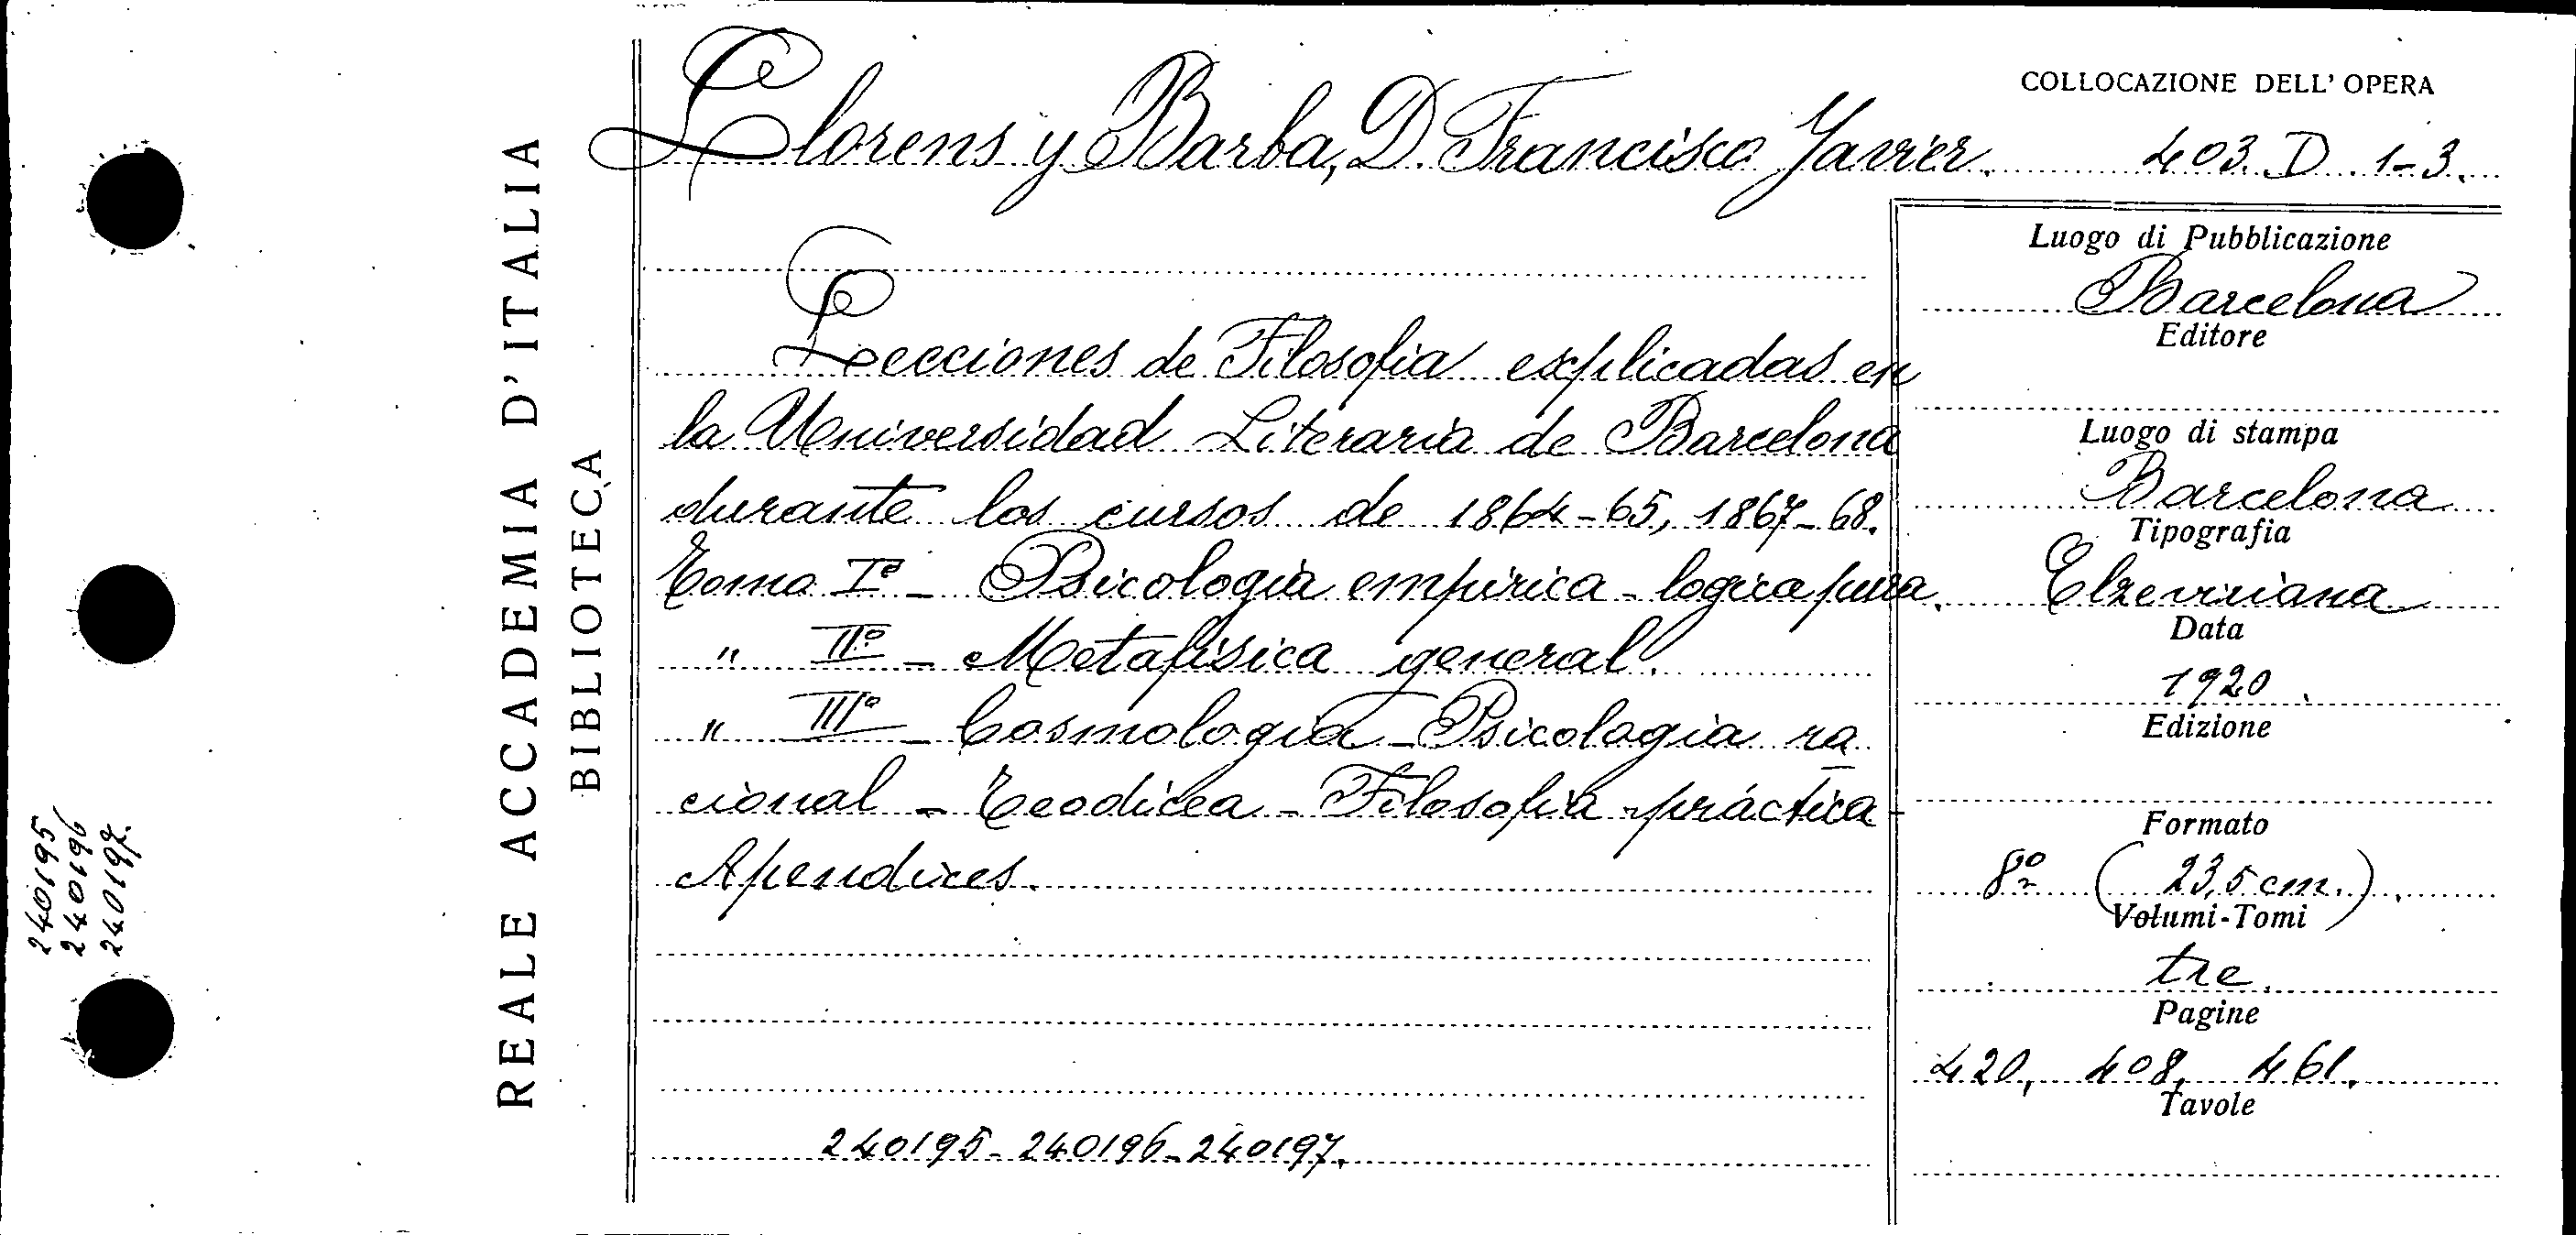 REALE ACCADEMIA D'ITALIA
BIBLIOTECA
240195
240196
240197.
Llorens y Barba, D. Francisco Javier.
COLLOCAZIONE DELL' OPERA
403. D. 1-3.
Lecciones de Filosofia explicadas en
la Universidad Literaria de Barcelona
durante los cursos de 1864-65, 1867-68.
Tomo Iº - Psicologia empirica - logica pura.
" IIº - Metafisica general.
" IIIº - Cosmologia - Psicologia ra
cional - Teodicea - Filosofia práctica -
Apendices.
240195 - 240196 - 240197.
Luogo di Pubblicazione
Barcelona
Editore
Luogo di stampa
Barcelona
Tipografia
Elzeviriana
Data
1920.
Edizione
Formato
8º (23,5 cm.).
Volumi-Tomi
tre.
Pagine
420, 408, 461.
Tavole